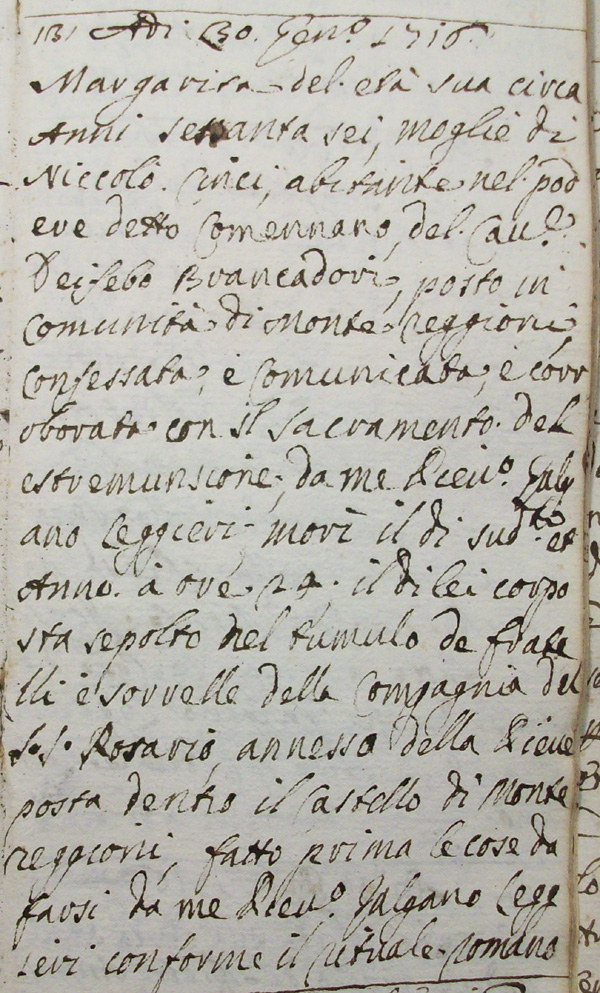 131 Adi 30. Gen.º 1716
Margarita del età sua circa
Anni sessanta sei, moglie di
Niccolò. Cinci, abitante nel pod
ere detto Comennano, del Cav.º
Deifebo Brancadori, posto in
Comunità di Monte reggioni,
confessata, e comunicata, e corr
oborata con il sacramento del
estremunsione, da me Piev.º Galg
ano Leggieri, morì il dì sud.to et
Anno. à ore 24. il di lei corpo
sta sepolto nel tumulo de frate
lli e sorrelle della Compagnia del
S.S. Rosario, annesso della Pieve
posta dentro il Castello di Monte
reggioni, fatto prima le cose da
farsi da me Piev.º Galgano Legg
ieri conforme il rituale romano